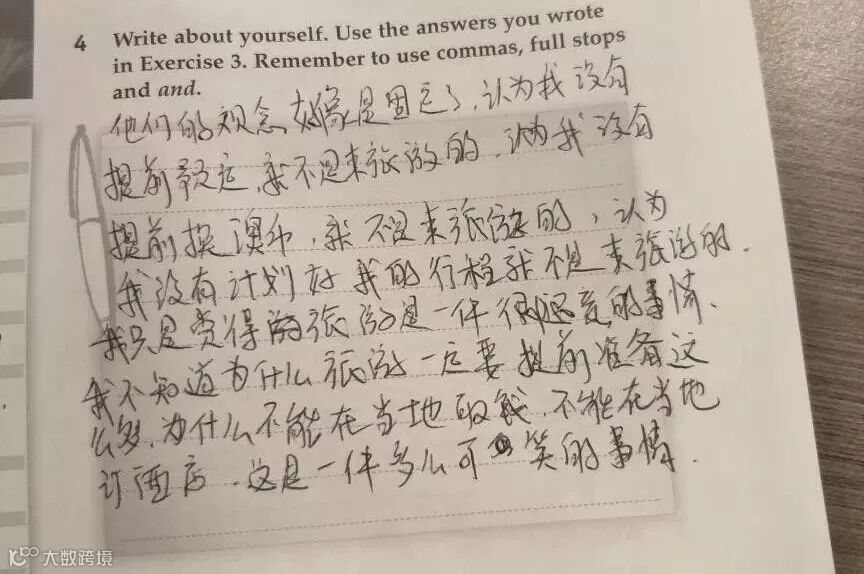 4 Write about yourself. Use the answers you wrote
in Exercise 3. Remember to use commas, full stops
and and.
他们的观念好像是固定了，认为我没有
提前预定，就不是来旅游的，认为我没有
提前换澳币，就不是来旅游的，认为
我没有计划好我的行程就不是来旅游的．
我只是觉得旅游是一件很随意的事情、
我不知道为什么旅游一定要提前准备这
么多，为什么不能在当地取钱，不能在当地
订酒店．这是一件多么可笑的事情．
大数跨境